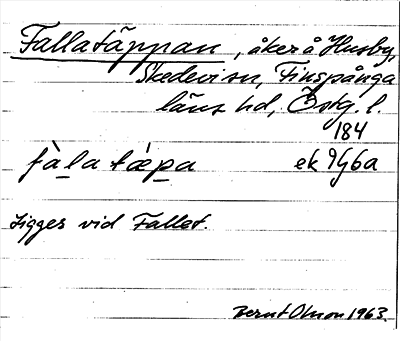 Fallatäppan, åker å Husby,
Skedevi sn, Finspånga
läns hd, Östg. l.
184
fàla tæ̀pa ek 9G6a
Ligges vid Fallet.
Bernt Olson 1963.